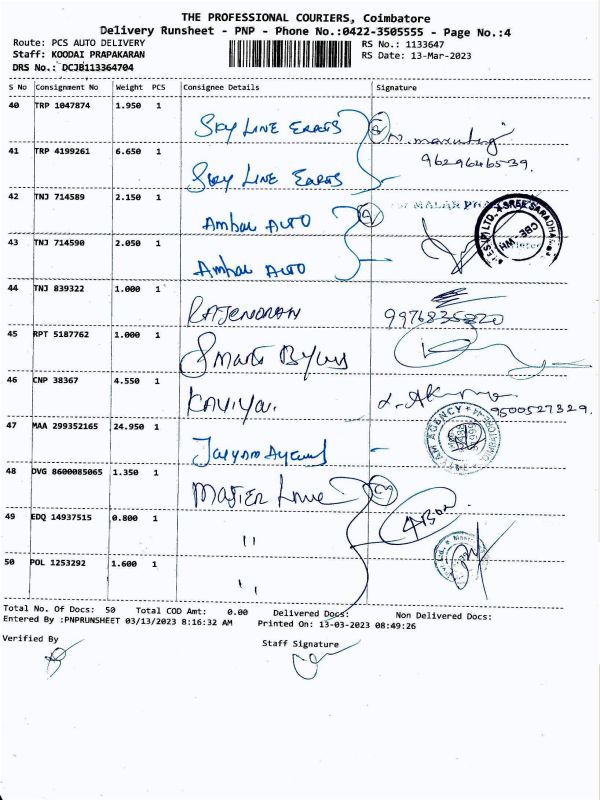 THE PROFESSIONAL COURIERS, Coimbatore
Delivery Runsheet - PNP - Phone No.:0422-3505555 - Page No.:4
Route: PCS AUTO DELIVERY RS No.: 1133647
Staff: KOODAI PRAPAKARAN RS Date: 13-Mar-2023
DRS No.: DCJB113364704
S No Consignment No Weight PCS Consignee Details Signature
40 TRP 1047874 1.950 1
SKY LINE
41 TRP 4199261 6.650 1 9629646539.
SKY LINE
42 TNJ 714589 2.150 1
Ambal AUTO
43 TNJ 714590 2.050 1
Ambal AUTO
44 TNJ 839322 1.000 1
RAJENDRAN 9976835820
45 RPT 5187762 1.000 1
46 CNP 38367 4.550 1
KAVIYA. 9500527329.
47 MAA 299352165 24.950 1
48 DVG 8600085065 1.350 1
49 EDQ 14937515 0.800 1
"
50 POL 1253292 1.600 1
"
Total No. Of Docs: 50 Total COD Amt: 0.00 Delivered Docs: Non Delivered Docs:
Entered By :PNPRUNSHEET 03/13/2023 8:16:32 AM Printed On: 13-03-2023 08:49:26
Verified By Staff Signature